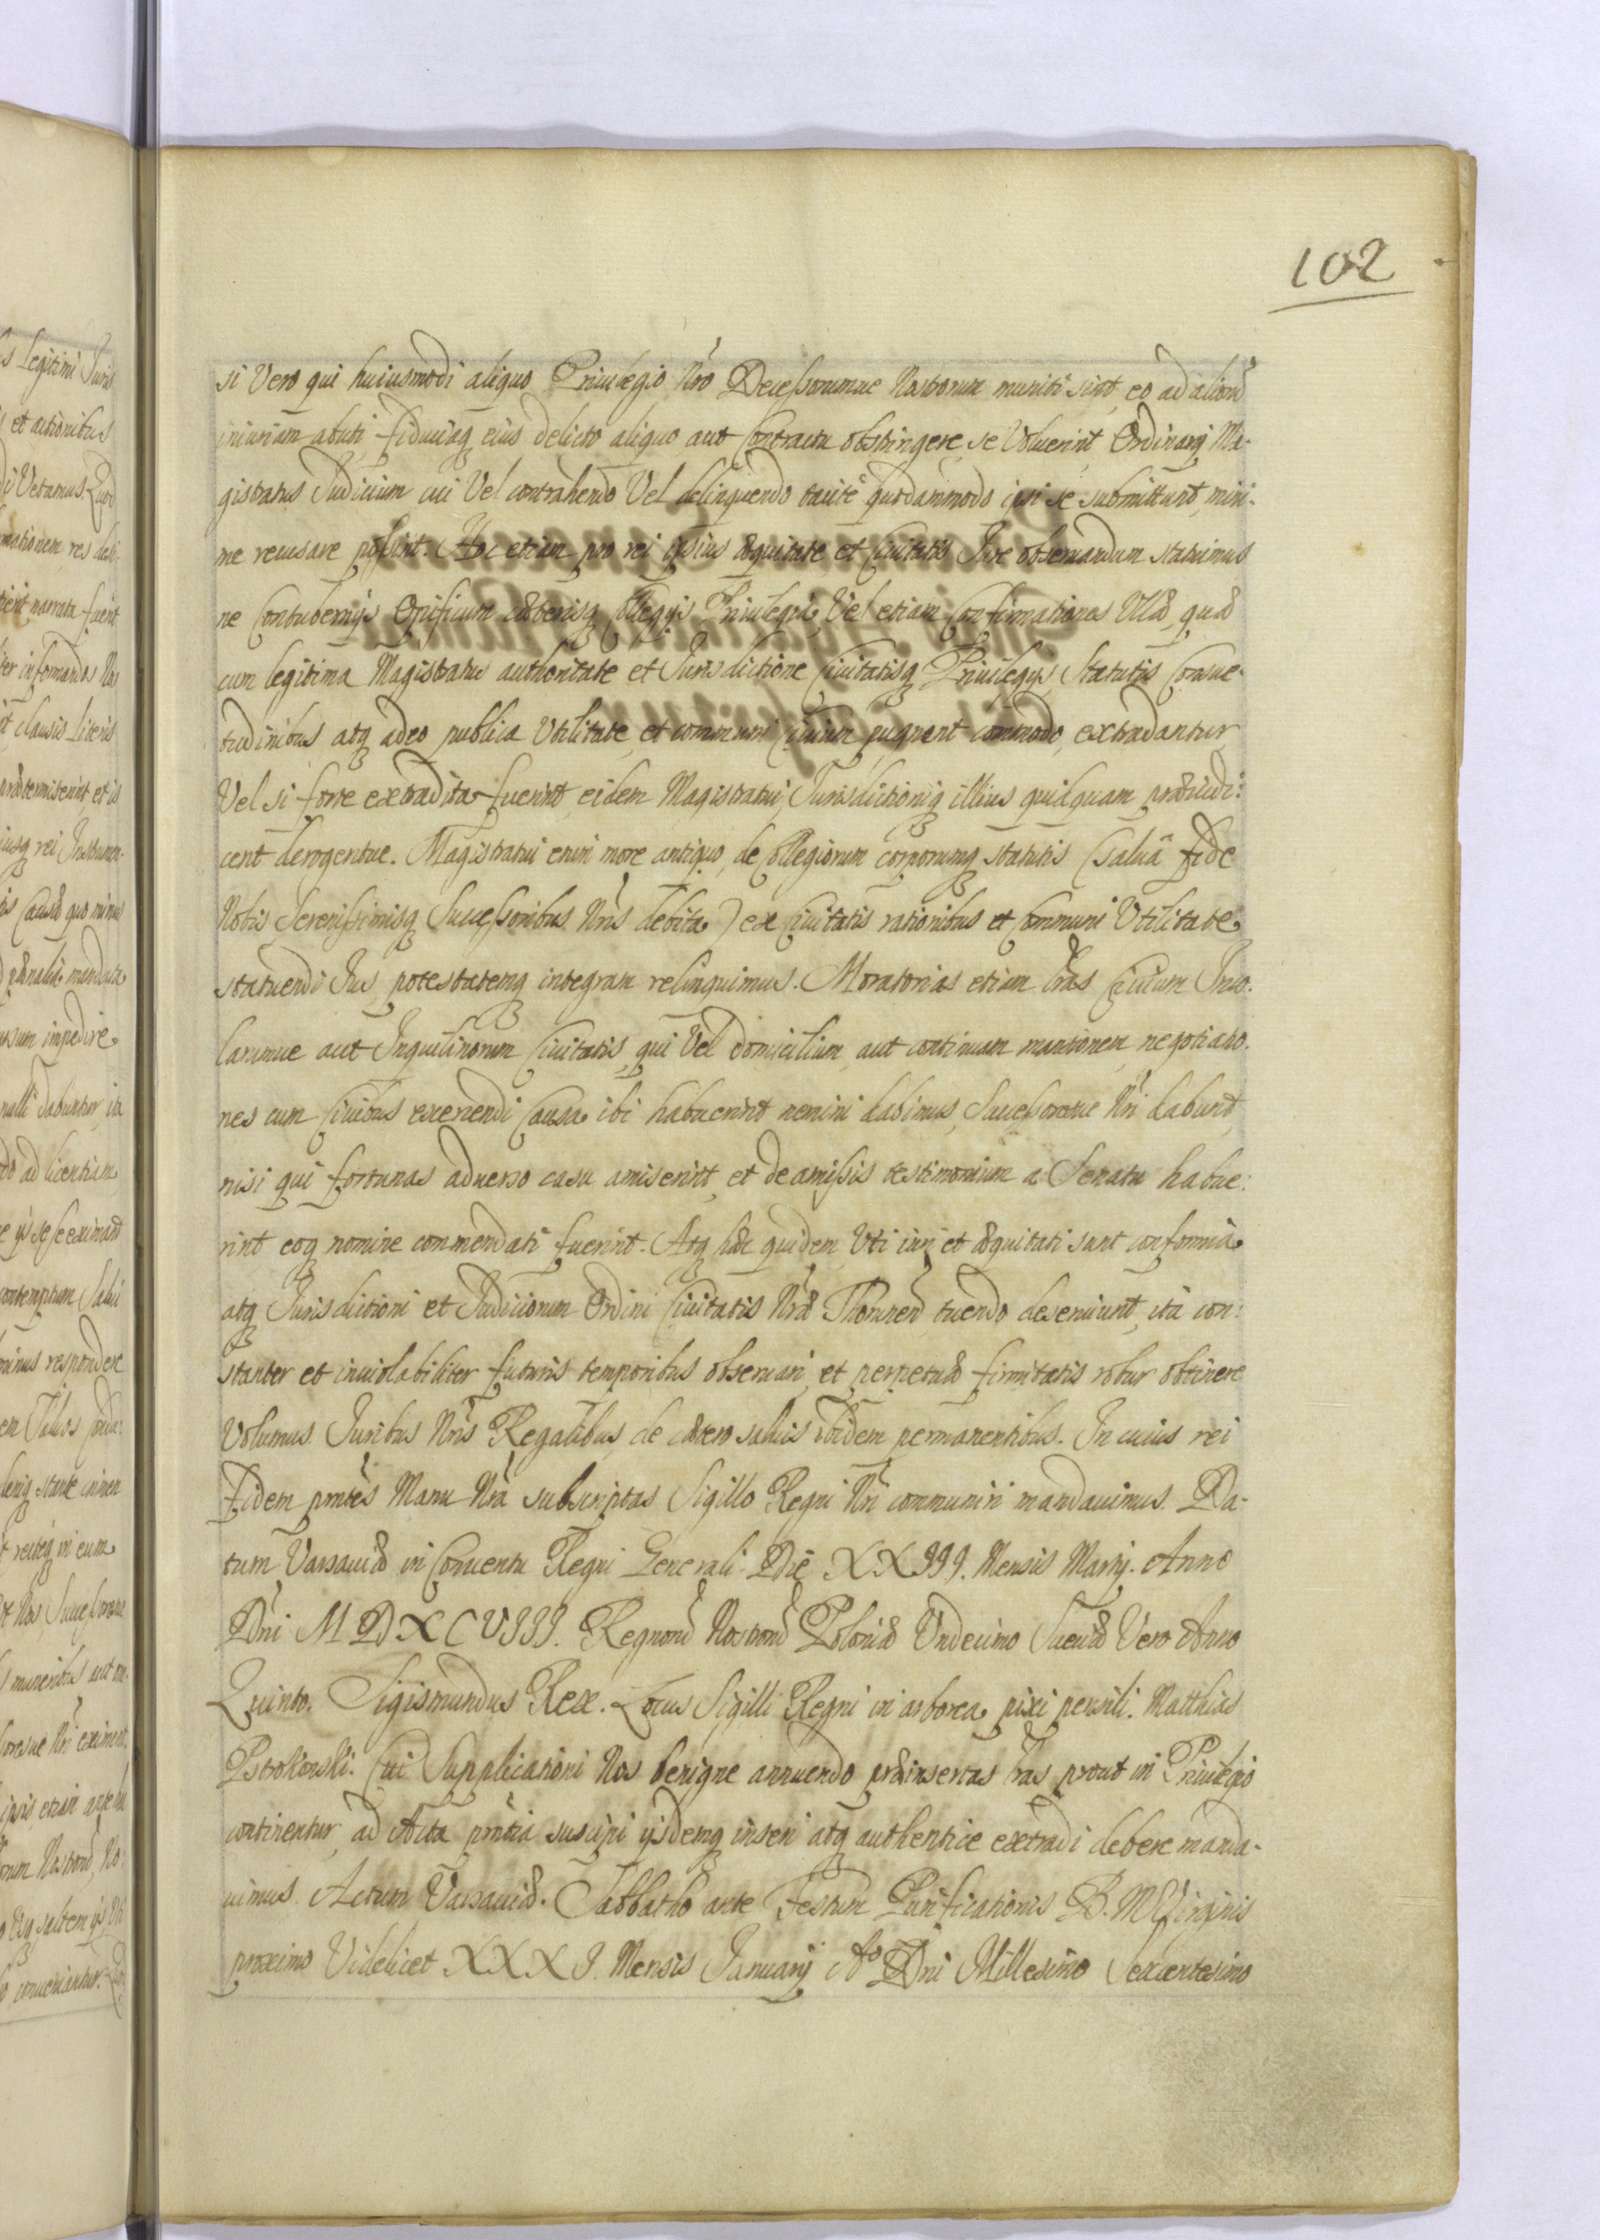 102
si Vero qui huiusmodi aliquo Priuilegio Nr̃o Decessorumue Nostrorum muniti sint, eo ad aliorũ
iniuriam abuti, fiduciaq eius delicto aliquo aut Contractu obstringere se Voluerint, Ordinarij Ma-
gistratus Judicium cui Vel contrahendo Vel delinquendo tacite quodammodo ipsi se submittunt, mini-
me recusare possint. Hoc etiam pro rei ipsius æquitate et Ciuitatis Jure obseruandum statuimus
ne Contubernijs Opificum cæterisq Collegijs Priuilegia Vel etiam Confirmationes Vllæ, quæ
cum legitima Magistratus authoritate et Jurisdictione Ciuitatisq Priuilegijs, Statutis Consue-
tudinibus, atq adeo publica Vtilitate, et communi Ciuium pugnent commodo, extradantur,
Vel si forte extradita fuerint, eidem Magistratui Jurisdictioniq illius quidquam præiudi:
cent derogentue. Magistratui enim more antiquo, de Collegiorum corporumq statutis (salua fide
Nobis Serenissimisq Successoribus Nr̃is debita) ex Ciuitatis rationibus et Communi Vtilitate
statuendi Jus, potestatemq integram relinquimus. Moratorias etiam lr̃as Ciuium Inco:
larumue aut Inquilinorum Ciuitatis, qui Vel domicilium, aut continuam mansionem, negotiatio:
nes cum Ciuibus exercendi Causa ibi habuerint nemini dabimus, Successoresue Nr̃i dabunt,
nisi qui fortunas aduerso casu amiserint, et de amissis testimonium a Senatu habue:
rint eoq nomine commendati fuerint. Atq hæc quidem Vti iuri et æquitati sunt conformia
atq Jurisdictioni et Judiciorum Ordini Ciuitatis Nr̃æ Thorunen̄ tuendo deseruiunt, ita con:
stanter et inuiolabiliter futuris temporibus obseruari, et perpetuæ firmitatis robur obtinere
Volumus. Juribus Nr̃is Regalibus, de cætero saluis ibidem permanentibus. In cuius rei
Fidem pntes Manu Nr̃a subscriptas Sigillo Regni Nr̃i communiri mandauimus. Da-
tum Varsauiæ in Conuentu Regni Generali. Die XXIII. Mensis Martij. Anno
Dn̄i MDXCVIII. Regnorũ Nostrorũ Poloniæ Vndecimo Sueciæ Vero Anno
Quinto. Sigismundus Rex. Locus Sigilli Regni in arborea pixi pensili. Matthias
Pstrokonski. Cui Supplicationi Nos benigne annuendo præinsertas lr̃as prout in Priuilegio
continentur, ad Acta pn̄tia suscipi ijsdemq inseri atq authentice extradi debere manda-
uimus. Actum Varsauiæ. Sabbatho ante Festum Purificationis B. M Virginis
proximo Videlicet XXXI. Mensis Januarij Ao Dn̄i Millesimo Sexcentesimo